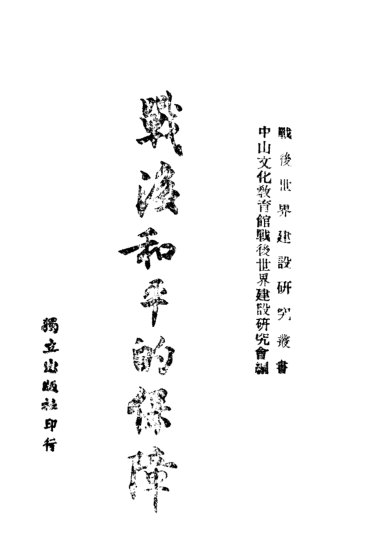 戰後世界建設硏究叢書
中山文化敎育館戰後世界建設硏究會編
戰後和平的保障
獨立出版社印行